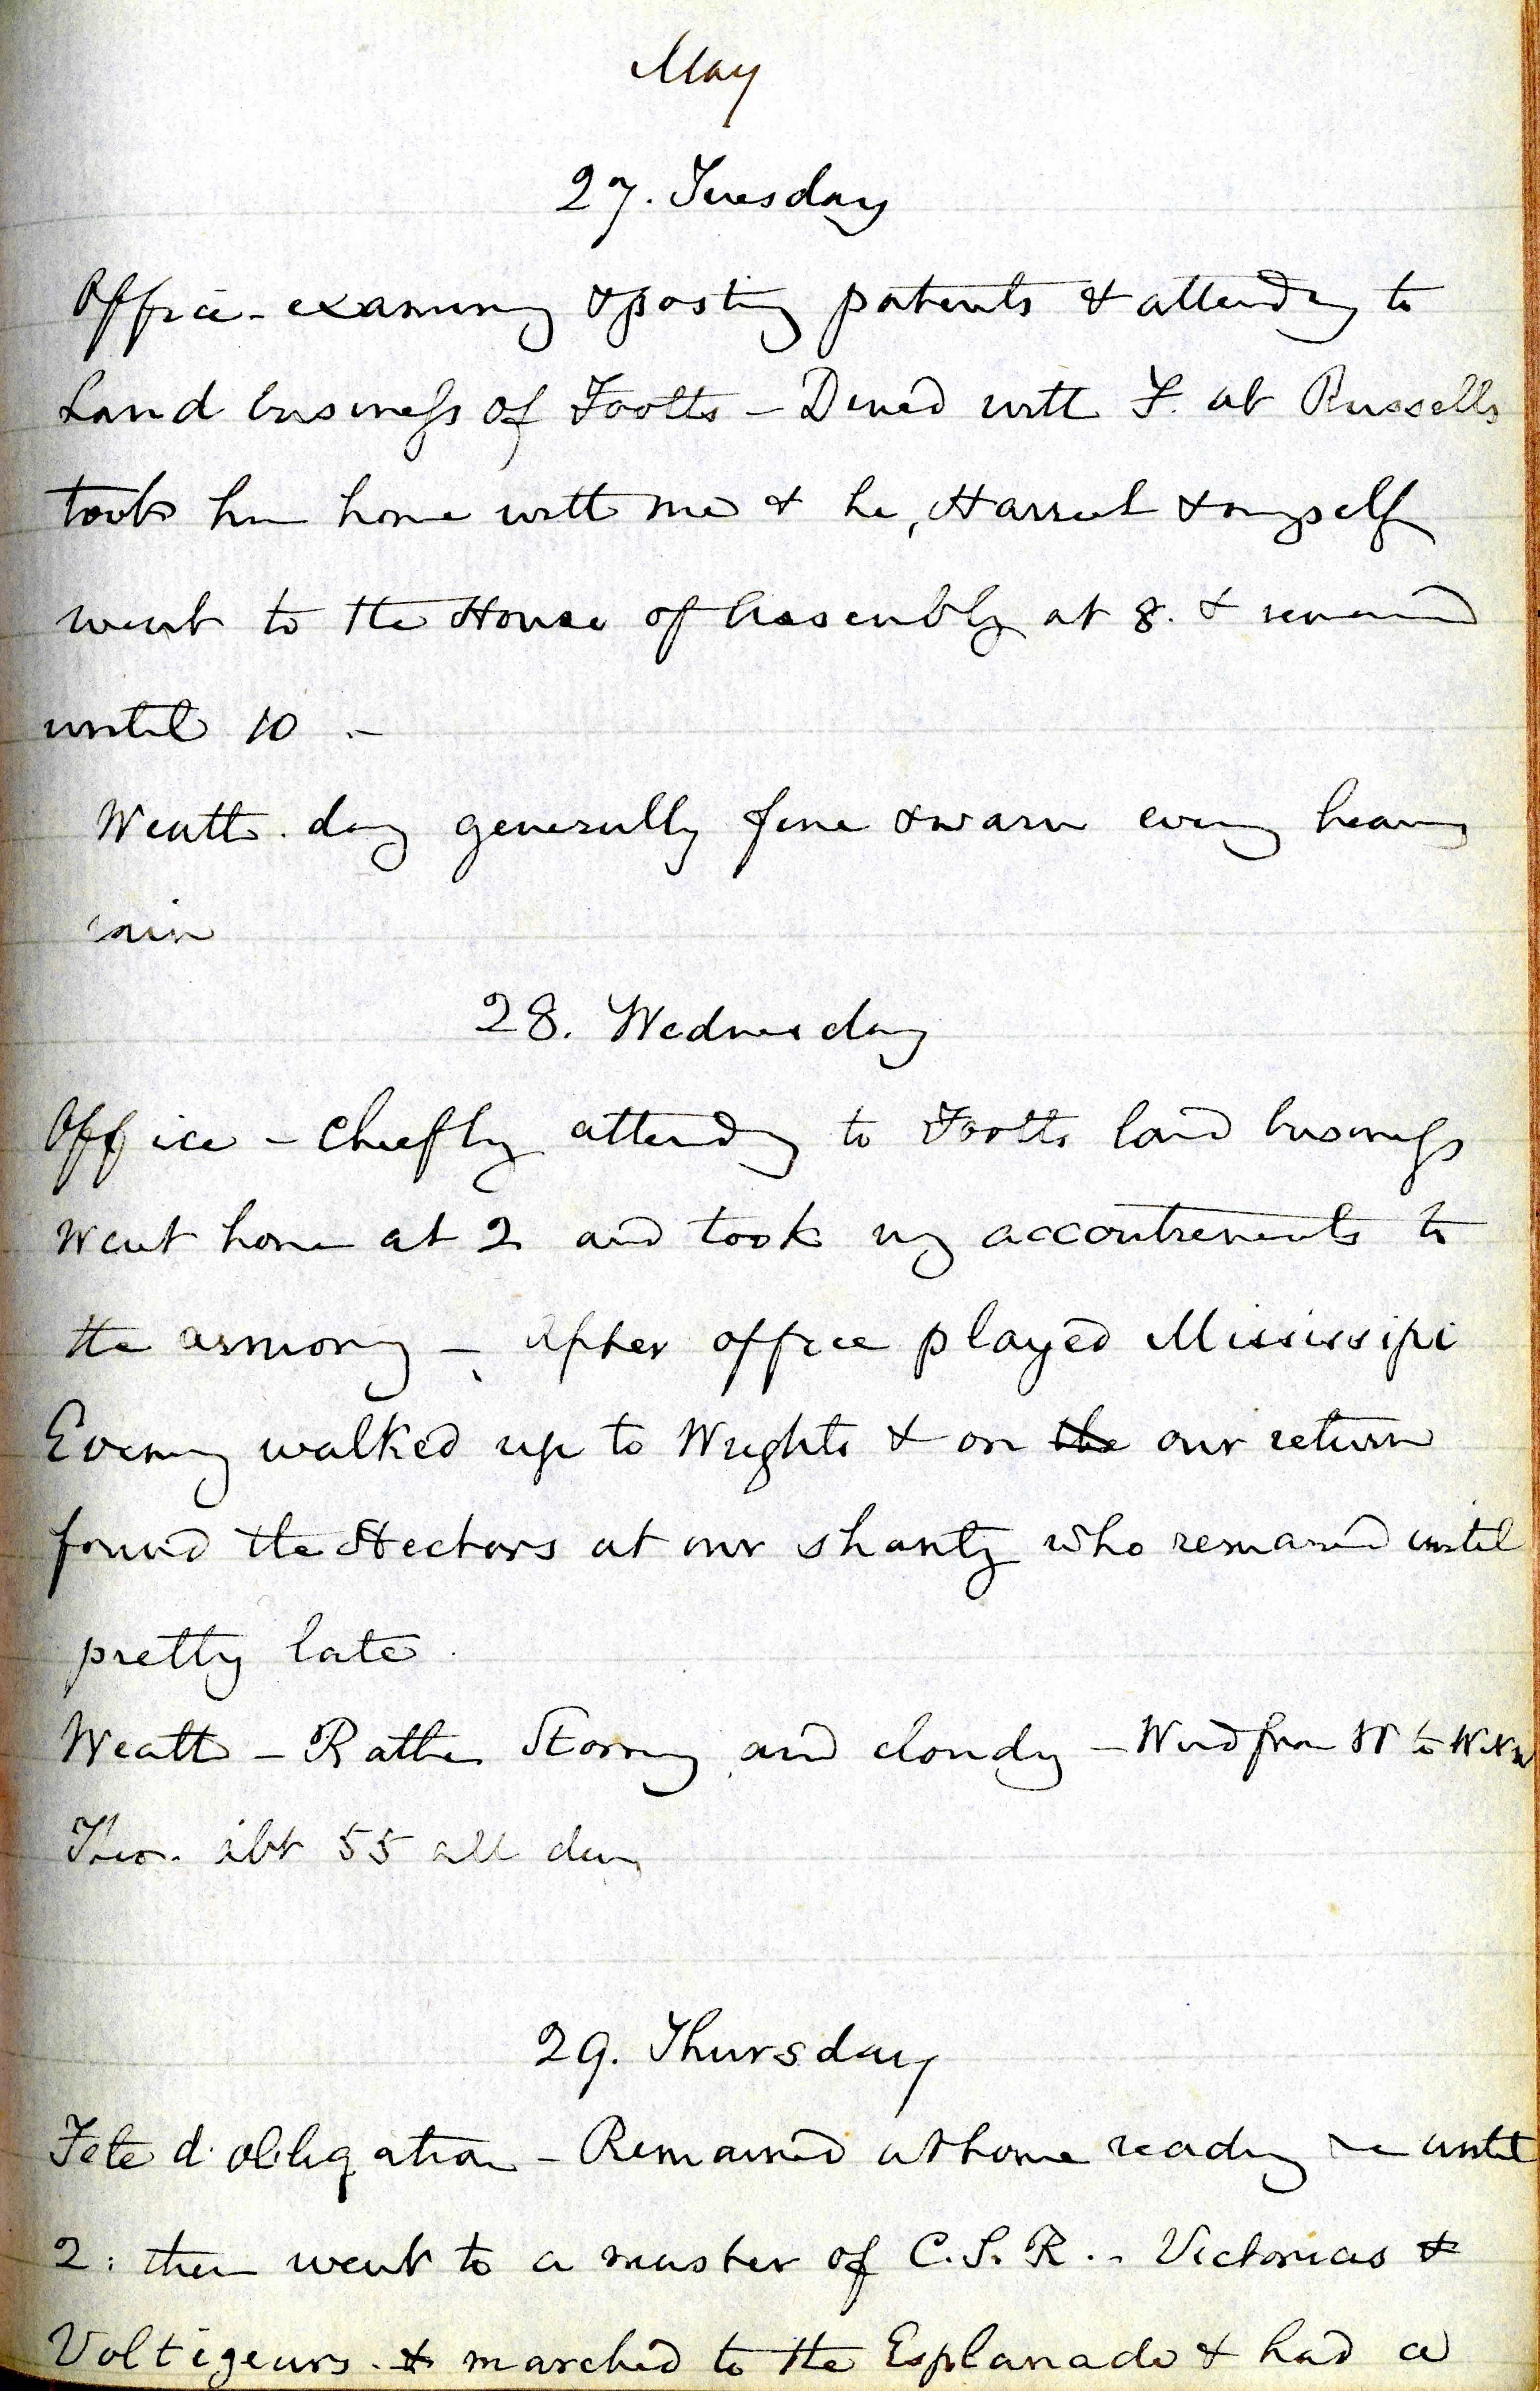 May
27. Tuesday
Office - examining & posting patents & attending to
Land business of Footts - Dined with F. at Russells
took him home with me & he, Harriet & myself
went to the House of Assembly at 8. & remained
until 10 . -
Weath. day generally fine & warm evening heavy
rain
28. Wednesday
Office - chiefly attending to Footts land business
Went home at 2 and took my accoutrements to
the armory - After office played Mississipi
Evening walked up to Wrights & on the our return
found the Hectors at our shanty who remained until
pretty late.
Weath - Rather Stormy and cloudy - Wind from W to WNW
Ther. abt 55 all day
29. Thursday
Fete d'obligation - Remained at home reading until
2: then went to a muster of C.S.R. - Victorias &
Voltigeurs. & marched to the Esplanade & had a